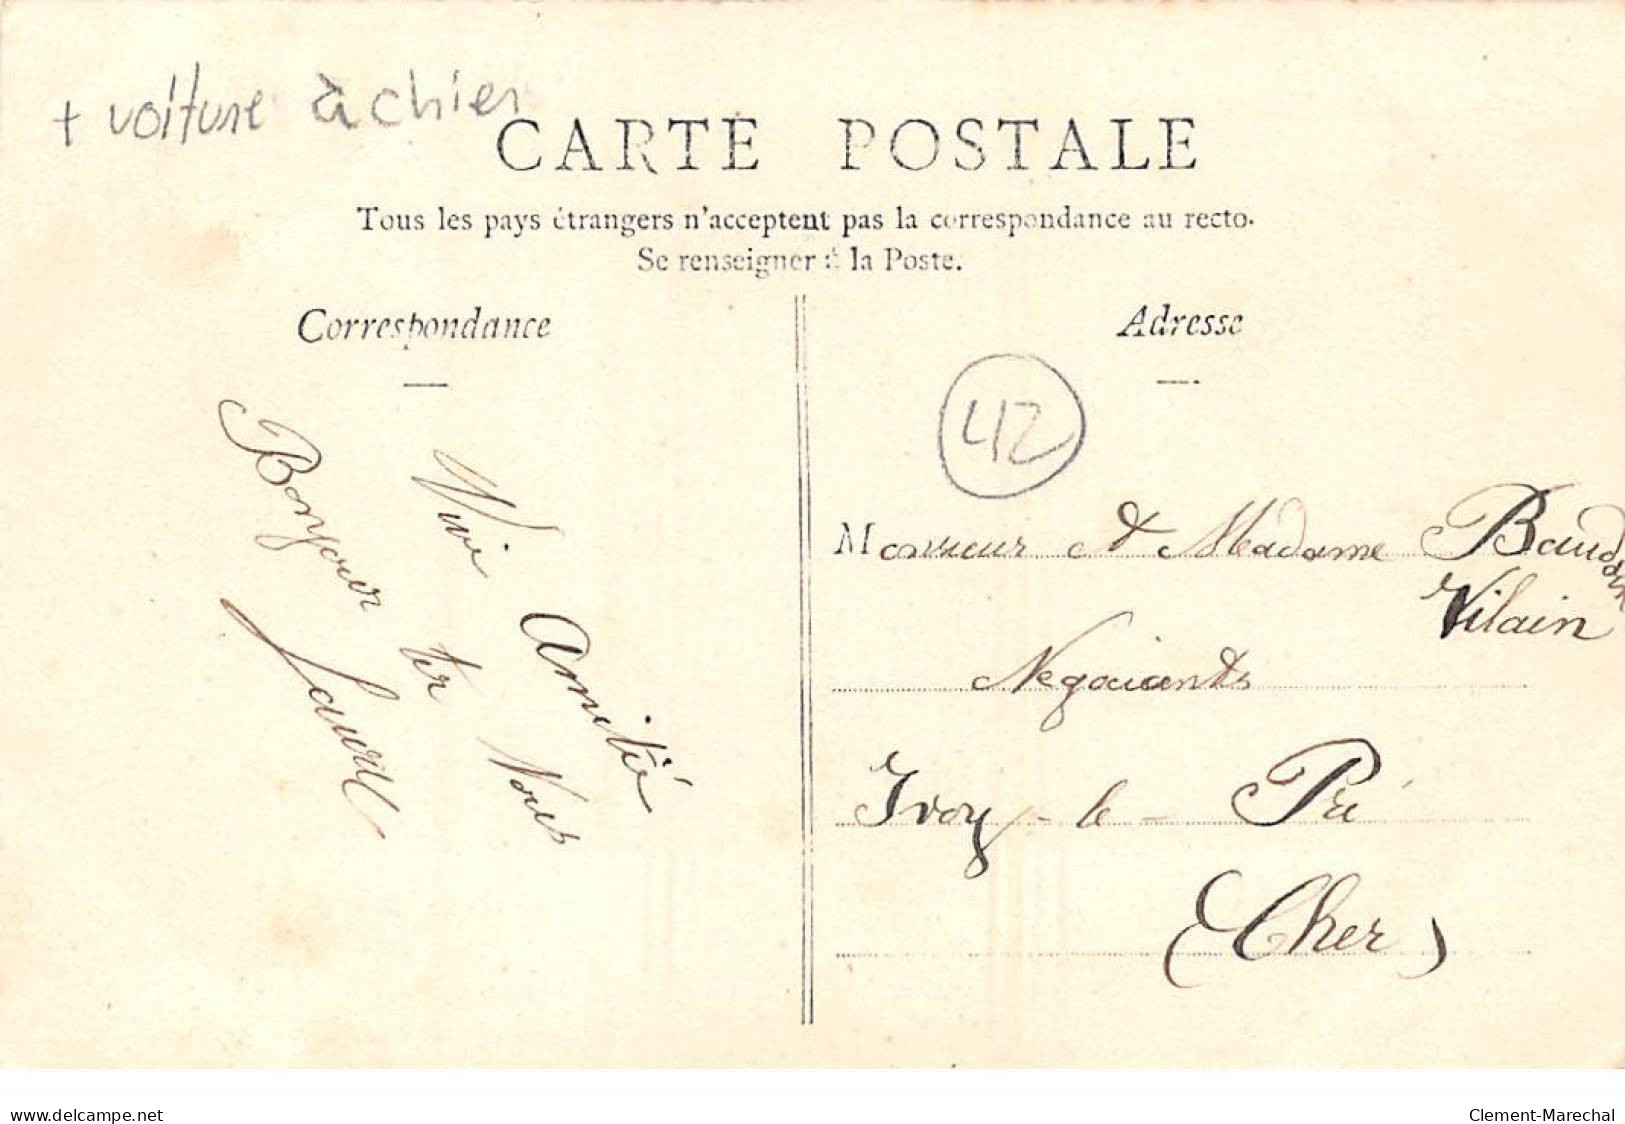 + voiture à chien
CARTE POSTALE
Tous les pays étrangers n'acceptent pas la correspondance au recto.
Se renseigner à la Poste.
Correspondance
Vive Amitié
Bonjour ter Vous
Laure
Adresse
42
Monsieur & Madame Baudoin
Vilain
Negaiants
Ivoy-le-Pré
(Cher)
www.delcampe.net
Clement-Marechal